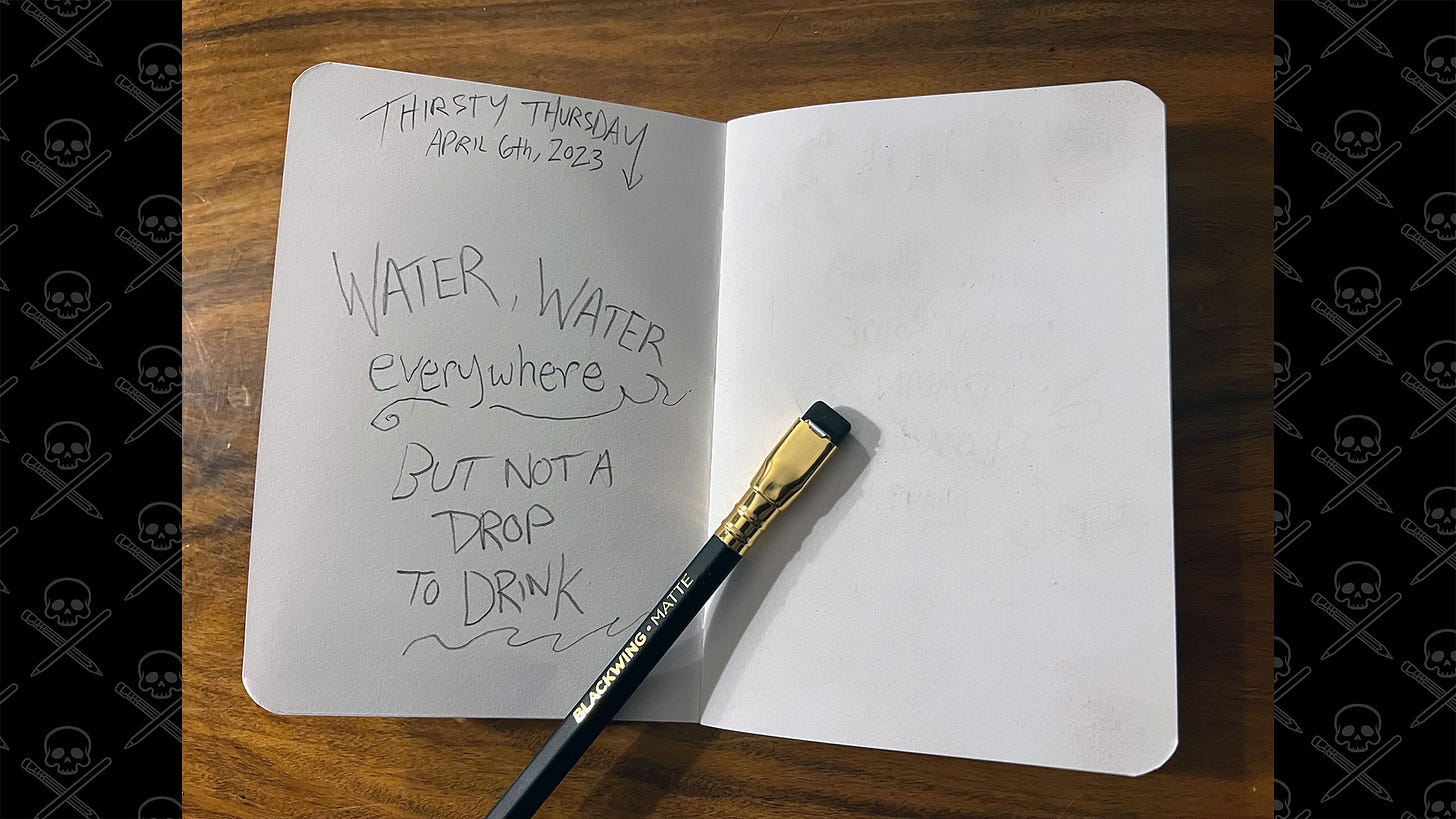 THIRSTY THURSDAY
APRIL 6th, 2023
WATER, WATER
everywhere
BUT NOT A
DROP
TO DRINK
BLACKWING • MATTE